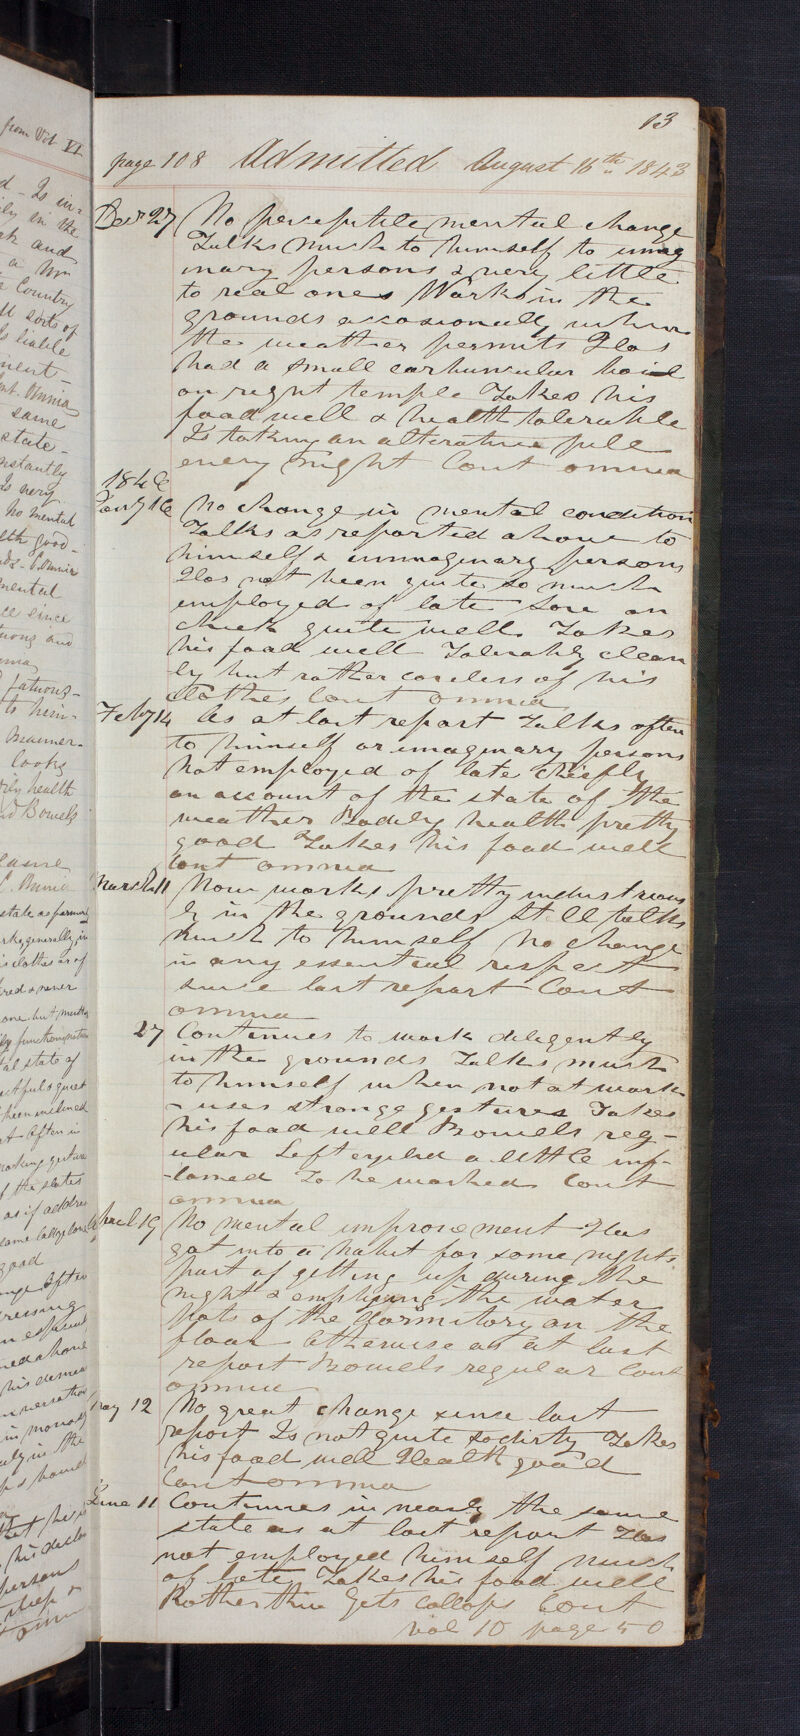 13
page 108 Admitted August 16th 1843
Decr 27 No perceptible mental change
Talks much to himself to imag
inary persons & very little
to real ones Works in the
grounds occasionally when
the weather permits Has
had a small carbuncular boil
on right temple Takes his
food well & health tolerable
Is taking an alterative pill
every night Cont omnia
184
Jany 16 No change in mental condition
Talks as reported above to
himself & immaginary persons
Has not been quite so much
employed of late Sore on
cheek quite well. Takes
his food well Tolerably clean
ly but rather careless of his
clothes Cont omnia
Feby 14 As at last report Talks often
to himself or imaginary persons
Not employed of late chiefly
on account of the state of the
weather Bodily health pretty
good Takes his food well
Cont omnia
March 11 Now works pretty industrious
ly in the grounds Still talks
much to himself No change
in any essential respect
since last report Cont
omnia
27 Continues to work diligently
in the grounds Talks much
to himself when not at work
& uses strange gestures Takes
his food well Bowels reg-
ular Left eyelid a little inf-
-lamed To be washed Cont
omnia
April 19 No mental improvement Has
got into a habit for some nights
past of getting up during the
night & emptying the water
pots of the dormitory on the
floor Otherwise as at last
report Bowels regular Cont
omnia
May 12 No great change since last
report Is not quite so dirty Takes
his food well Health good
Cont omnia
June 11 Continues in nearly the same
state as at last report Has
not employed himself much
of late Takes his food well
Rather thin Gets collops Cont
vol 10 page 50
from Vol VI
Is in-
in the
and
Country
sorts of
liable
Omnia
same
state-
very
No mental
good-
mental
since
and
fatuous-
to him-
manner-
looks
health
Bowels
state as formerly
generally in
clothes as of
state of
quiet
been inclined
Often in
gesture
of the slates
as if
good
Often
above
his
conversation
in the
his
persons
sleep &